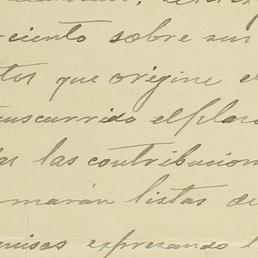 ciento sobre sus
que origine e
transcurrido el plazo
las contribucion
marán listas de
expresando l